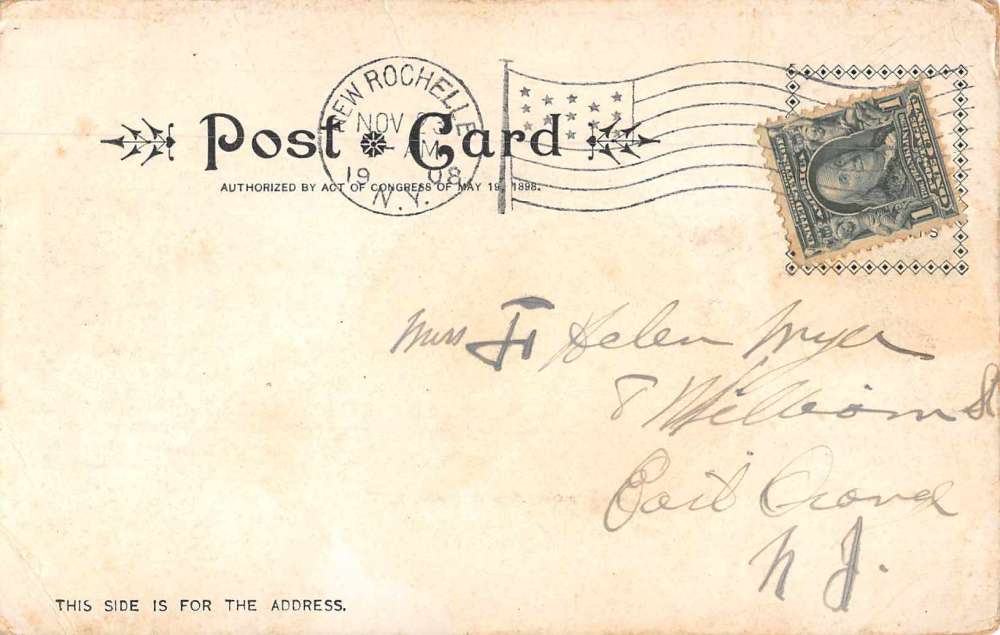 Post Card
AUTHORIZED BY ACT OF CONGRESS OF MAY 19, 1898.
NEW ROCHELLE
NOV
AM
19 08
N.Y.
1 1
Miss F Helen Myer
8 William St
East Orange
N J.
THIS SIDE IS FOR THE ADDRESS.